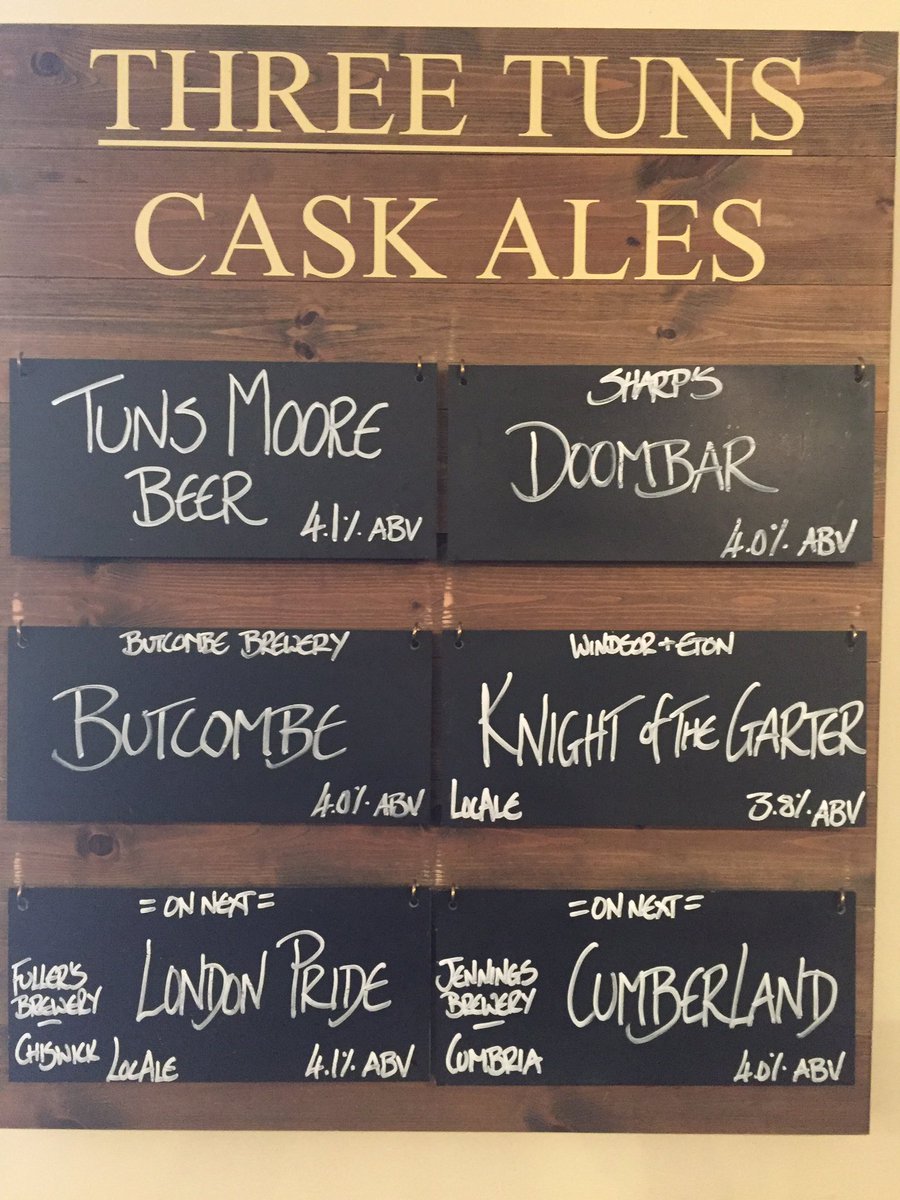 THREE TUNS
CASK ALES
TUNS MOORE
BEER
4.1% ABV
SHARP'S
DOOMBAR
4.0% ABV
BUTCOMBE BREWERY
BUTCOMBE
4.0% ABV
WINDSOR + ETON
KNIGHT of THE GARTER
LocAle
3.8% ABV
= ON NEXT =
FULLER'S
BREWERY
–
CHISWICK
LONDON PRIDE
LocAle
4.1% ABV
= ON NEXT =
JENNINGS
BREWERY
–
CUMBRIA
CUMBERLAND
4.0% ABV